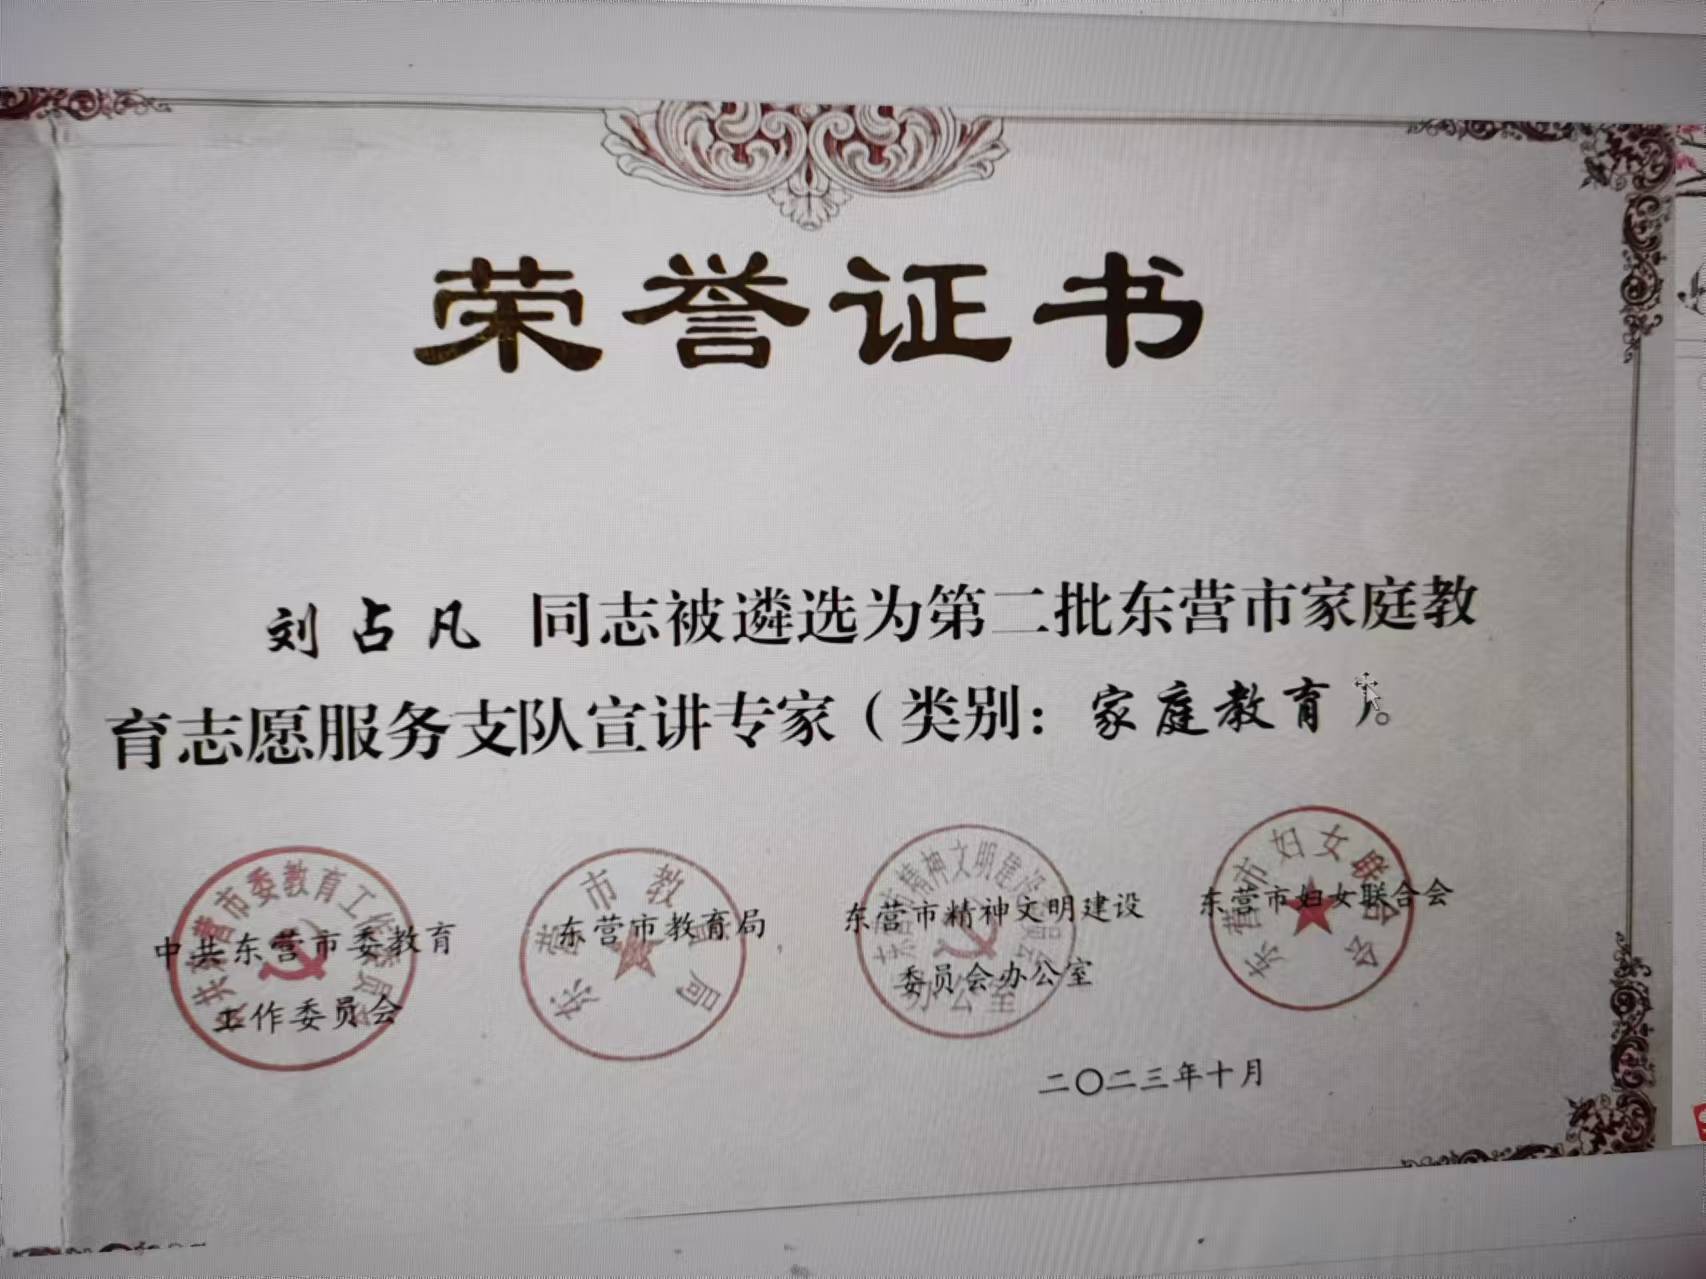 荣誉证书
刘占凡 同志被遴选为第二批东营市家庭教
育志愿服务支队宣讲专家（类别：家庭教育）。
中共东营市委教育
工作委员会
东营市教育局
东营市精神文明建设
委员会办公室
东营市妇女联合会
二〇二三年十月
东营市教育局
东营市妇女联合会